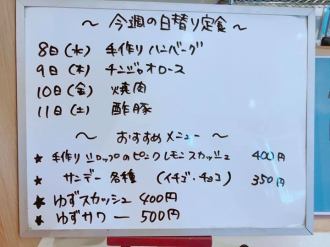 ～ 今週の日替り定食 ～
8日(水) 手作りハンバーグ
9日(木) チンジャオロース
10日(金) 焼肉
11日(土) 酢豚
～ おすすめメニュー ～
★ 手作りシロップのピンクレモンスカッシュ 400円
★ サンデー各種 (イチゴ・チョコ) 350円
★ ゆずスカッシュ 400円
★ ゆずサワー 500円